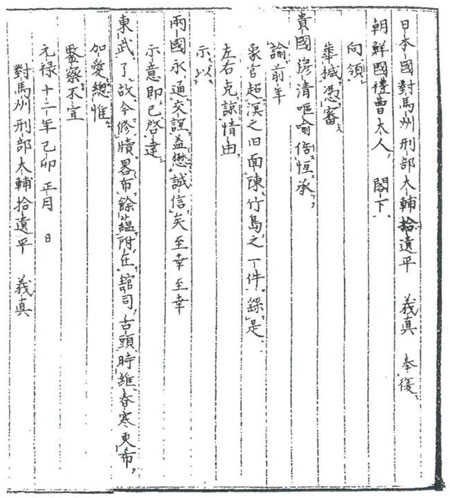 日本國對馬州刑部大輔拾遺平 義真 奉復
朝鮮國禮曹大人 閤下
向領
華緘憑審
貴國穆清嘔喻倍恒承
諭前年
象官超溟之旧面陳竹島之一件繇是
左右克諒情由
示以
兩國永通交誼益懋誠信矣至幸至幸
示意即已啓達
東武了故今修牘畧布餘蘊附在舘司舌頭時維春寒更布
加愛總惟
鑒察不宣
元禄十二年己卯正月 日
對馬州刑部大輔拾遺平 義真